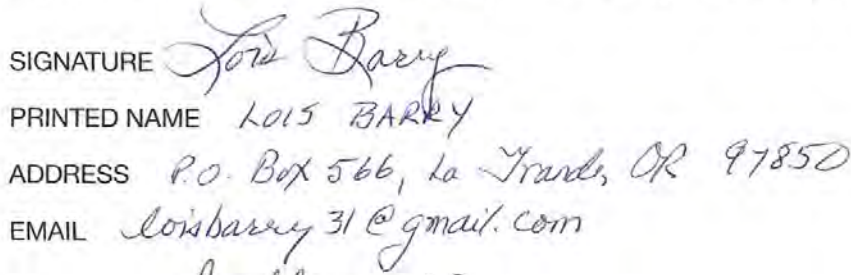 SIGNATURE Lois Barry
PRINTED NAME LOIS BARRY
ADDRESS P.O. Box 566, La Grande, OR 97850
EMAIL loisbarry31@gmail.com